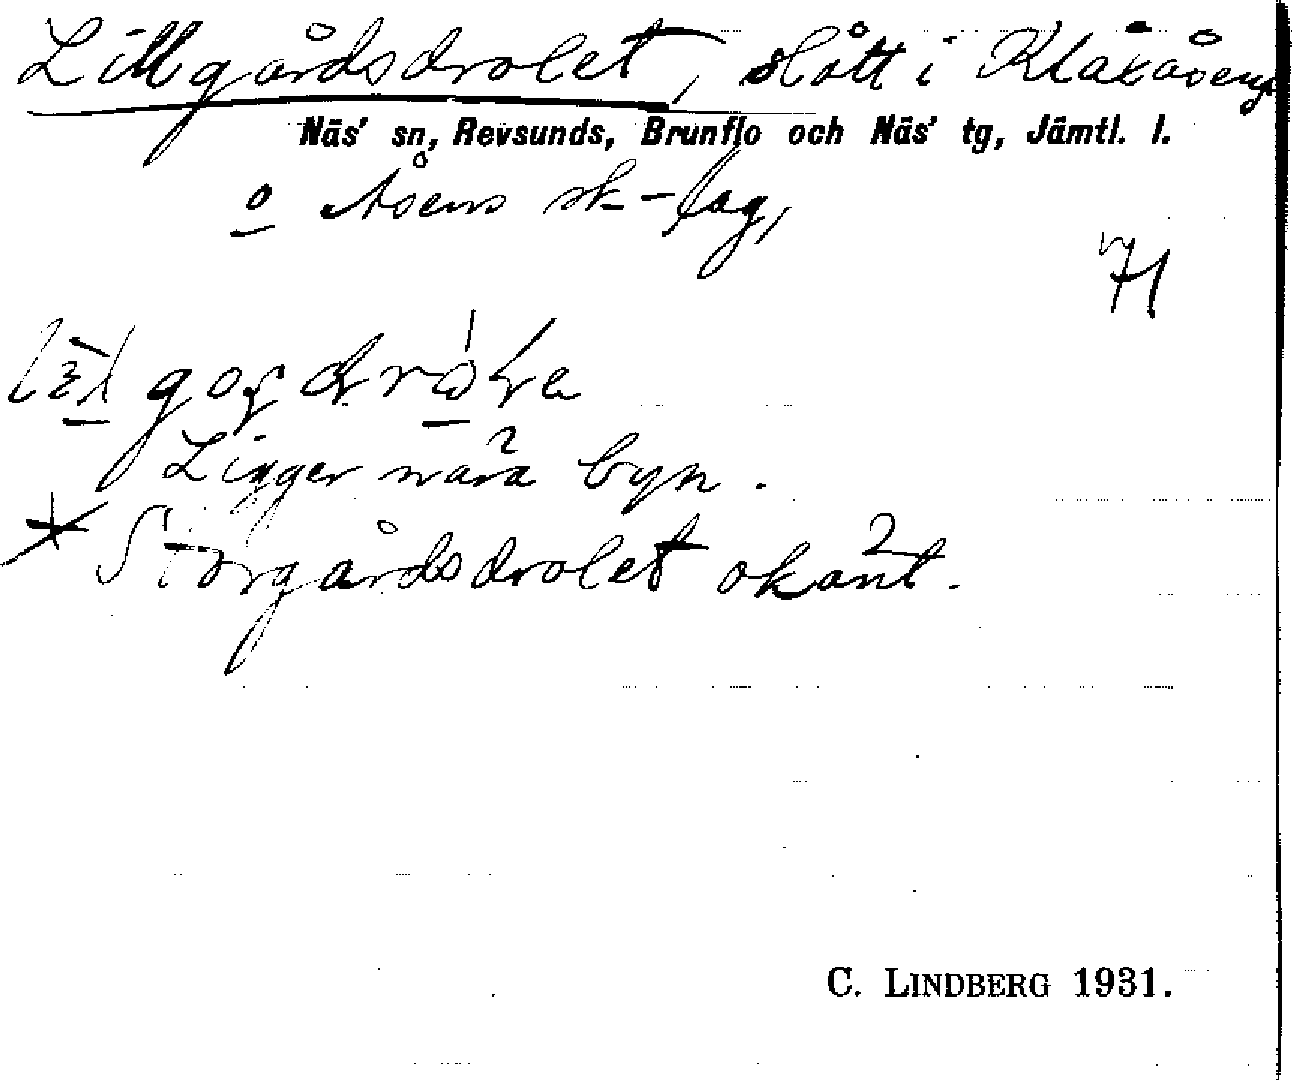 Lillgårdsdrolet, slått i Kläxåsens
Näs' sn, Revsunds, Brunflo och Näs' tg, Jämtl. l.
o Åsens sk-lag,
71
Ligger nära byn.
Storgårdsdrolet okänt.
C. LINDBERG 1931.